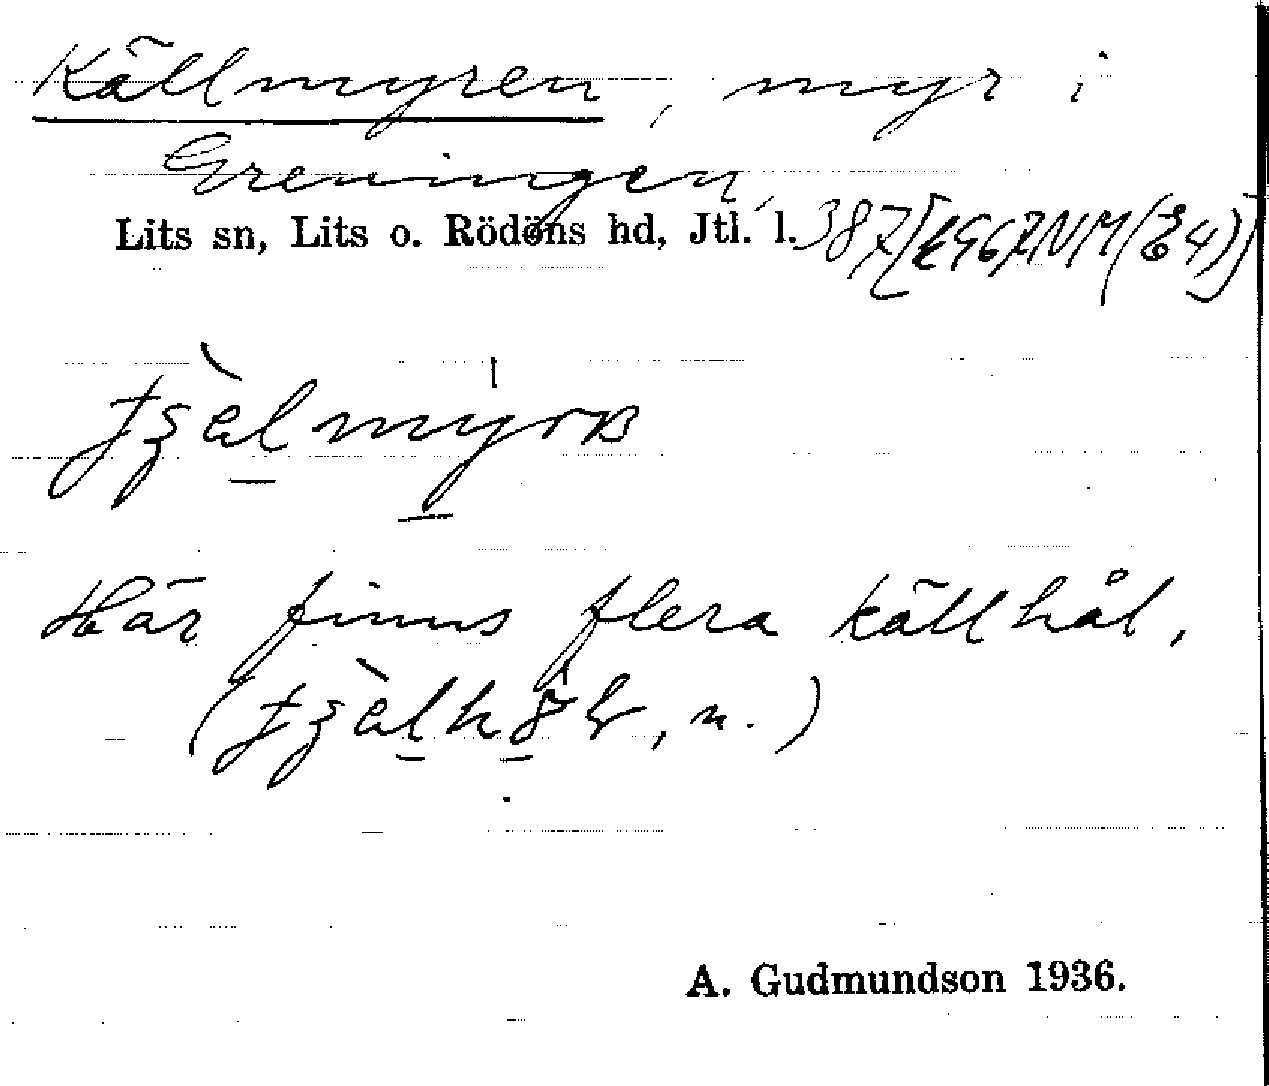 Källmyren, myr i
Greningen,
Lits sn, Lits o. Rödöns hd, Jtl. l. 387
Här finns flera källhål,
n.)
A. Gudmundson 1936.